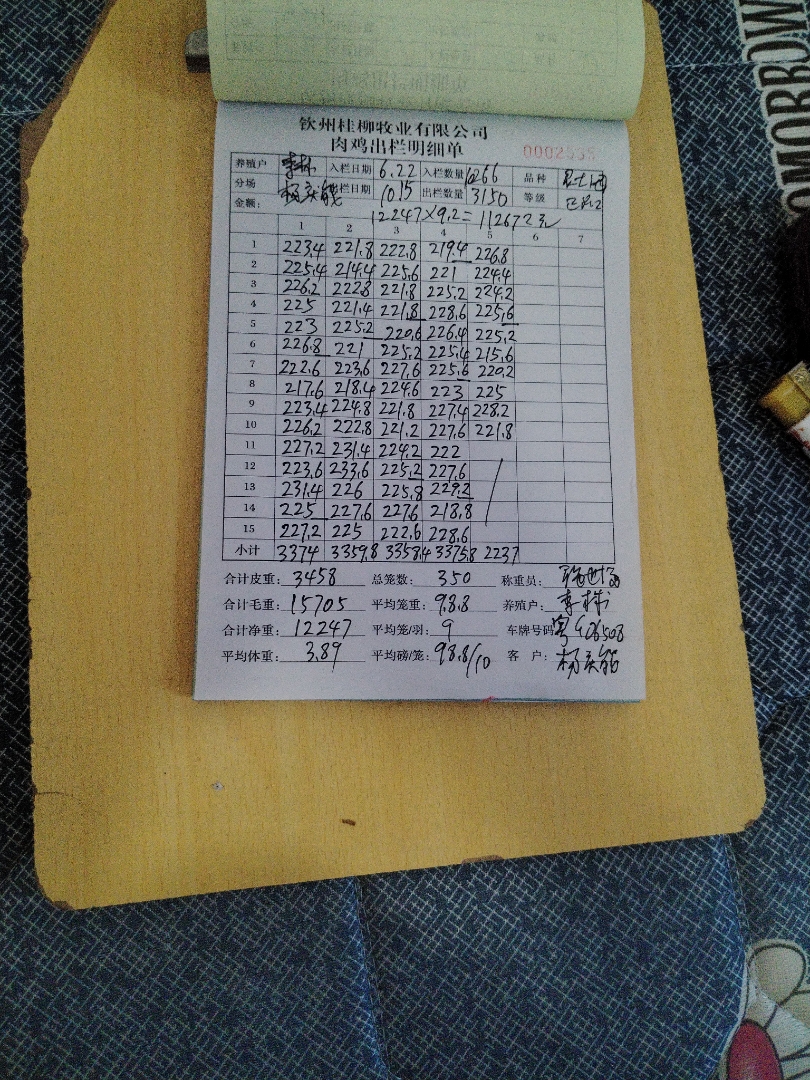 TOMORROW
钦州桂柳牧业有限公司
肉鸡出栏明细单
养殖户 李林 入栏日期 6.22 入栏数量 品种
分场 出栏日期 10.15 出栏数量 3150 等级
金额: 12247×9.2=112672元
1 2 3 4 5 6 7
1 223.4 221.8 222.8 219.4 226.8
2 225.4 214.4 225.6 221 224.4
3 226.2 222.8 221.8 225.2 224.2
4 225 221.4 221.8 228.6 225.6
5 223 225.2 220.6 226.4 225.2
6 226.8 221 225.2 225.4 215.6
7 222.6 223.6 227.6 225.6 220.2
8 217.6 218.4 224.6 223 225
9 223.4 224.8 221.8 227.4 228.2
10 226.2 222.8 221.2 227.6 221.8
11 227.2 231.4 224.2 222
12 223.6 233.6 225.2 227.6
13 231.4 226 225.8 229.2
14 225 227.6 227.6 218.8
15 227.2 225 222.6 228.6
小计 3374 3359.8 3358.4 3375.8 2237
合计皮重: 3458 总笼数: 350 称重员:
合计毛重: 15705 平均笼重: 9.8.8 养殖户: 李林
合计净重: 12247 平均笼/羽: 9 车牌号码
平均体重: 3.89 平均磅/笼: 98.8/10 客 户: